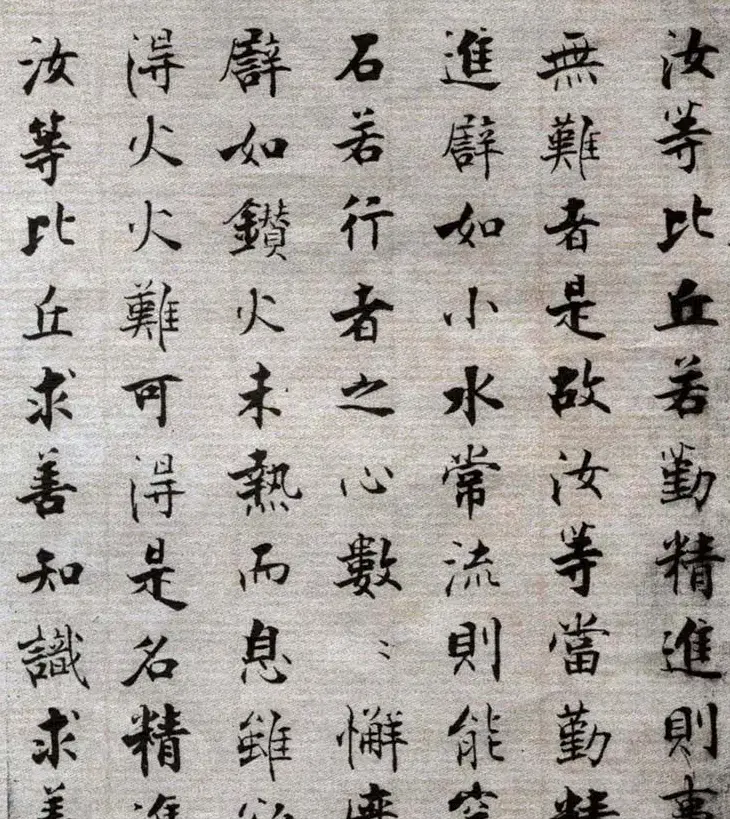 汝等比丘若勤精進則事
無難者是故汝等當勤精
進譬如小水常流則能穿
石若行者之心數〻懈廢
譬如鑽火未熱而息雖欲
得火火難可得是名精進
汝等比丘求善知識求善